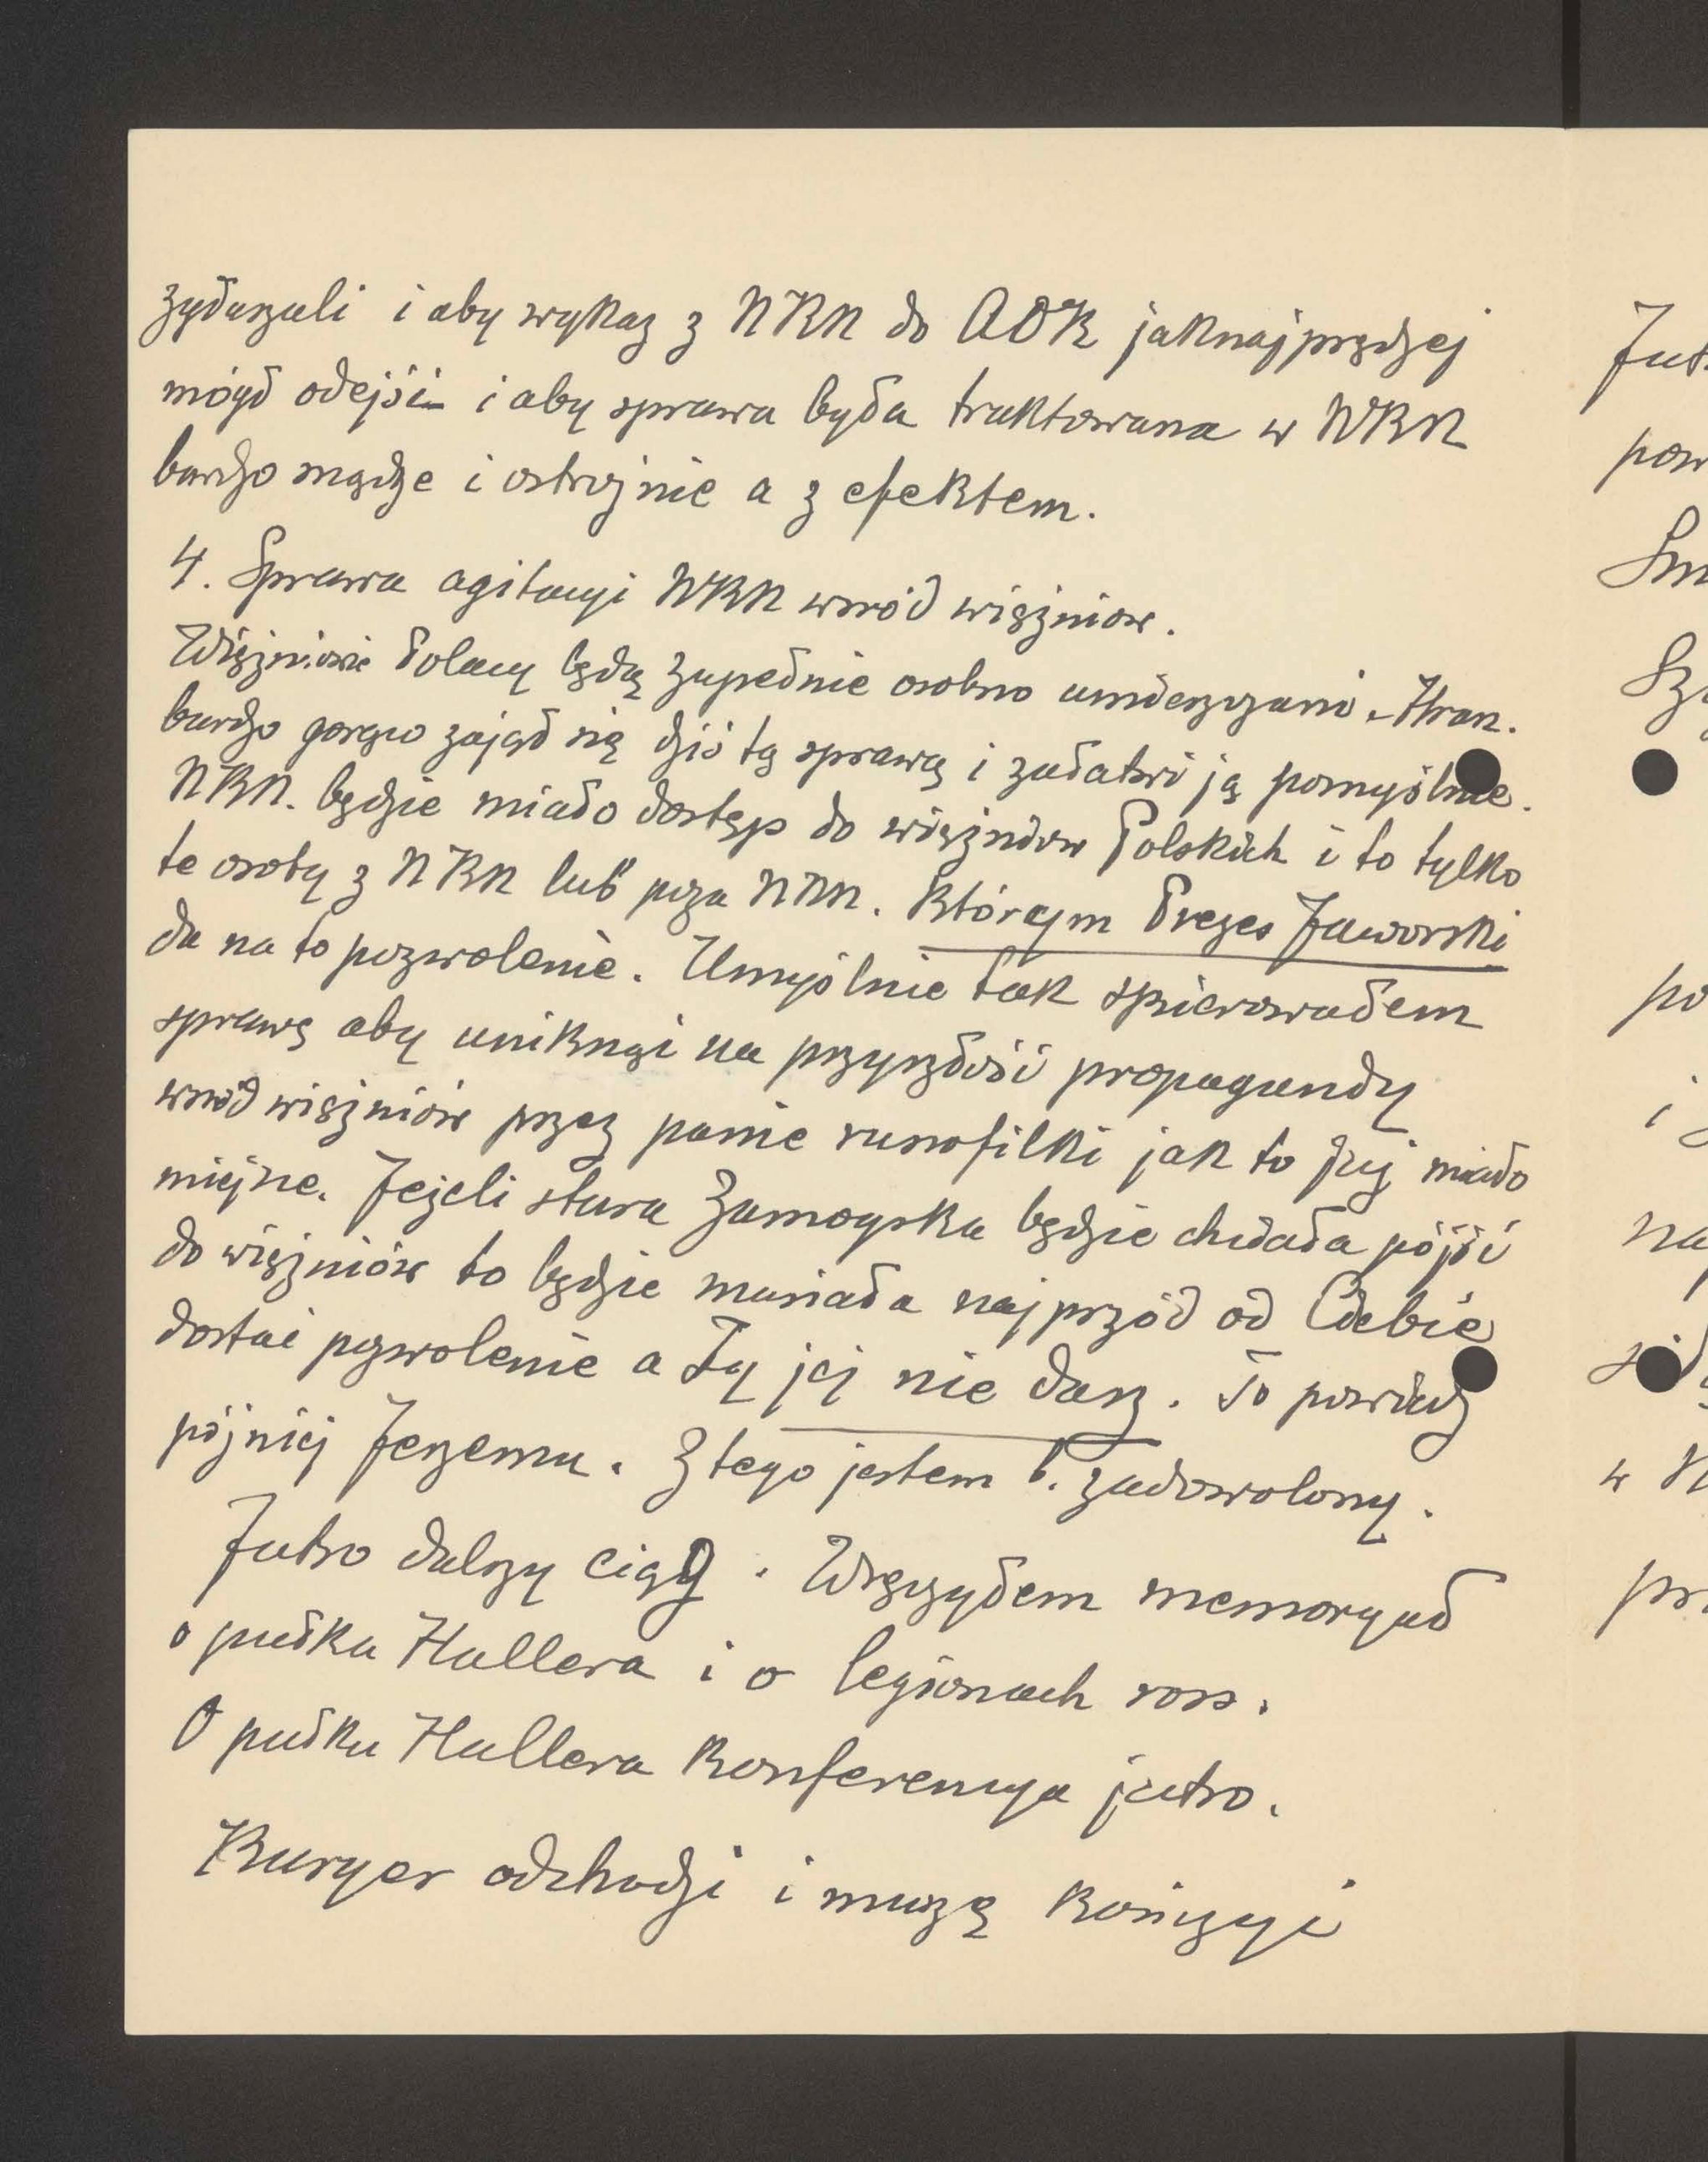 zgłaszali i aby wykaz z NKN do AOK jaknajprędzej
mógł odejść i aby sprawa była traktowana w NKN
bardzo mądrze i ostrożnie a z efektem.
4. Sprawa agitacyi NKN wśród więźniów.
Więźniowie Polacy będą zupełnie osobno umieszczani. Hran.
bardzo gorąco zajął się dziś tą sprawą i załatwi ją pomyślnie.
NKN. będzie miało dostęp do więźniów Polskich i to tylko
te osoby z NKN lub poza NKN. którym Prezes Jaworski
da na to pozwolenie. Umyślnie tak skierowałem
sprawę aby uniknąć na przyszłość propagandy
wśród więźniów przez panie rusofilki jak to już miało
miejsce. Jeżeli stara Zamoyska będzie chciała pójść
do więźniów to będzie musiała najprzód od Ciebie
dostać pozwolenie a Ty jej nie dasz. To powiedz
później Jerzemu. Z tego jestem b. zadowolony.
Jutro dalszy ciąg. Wręczyłem memoryał
o pułku Hallera i o legionach ross.
O pułku Hallera konferencya jutro.
Kuryer odchodzi i muszę kończyć
Jut
pow
Sz
po
i
na
w N